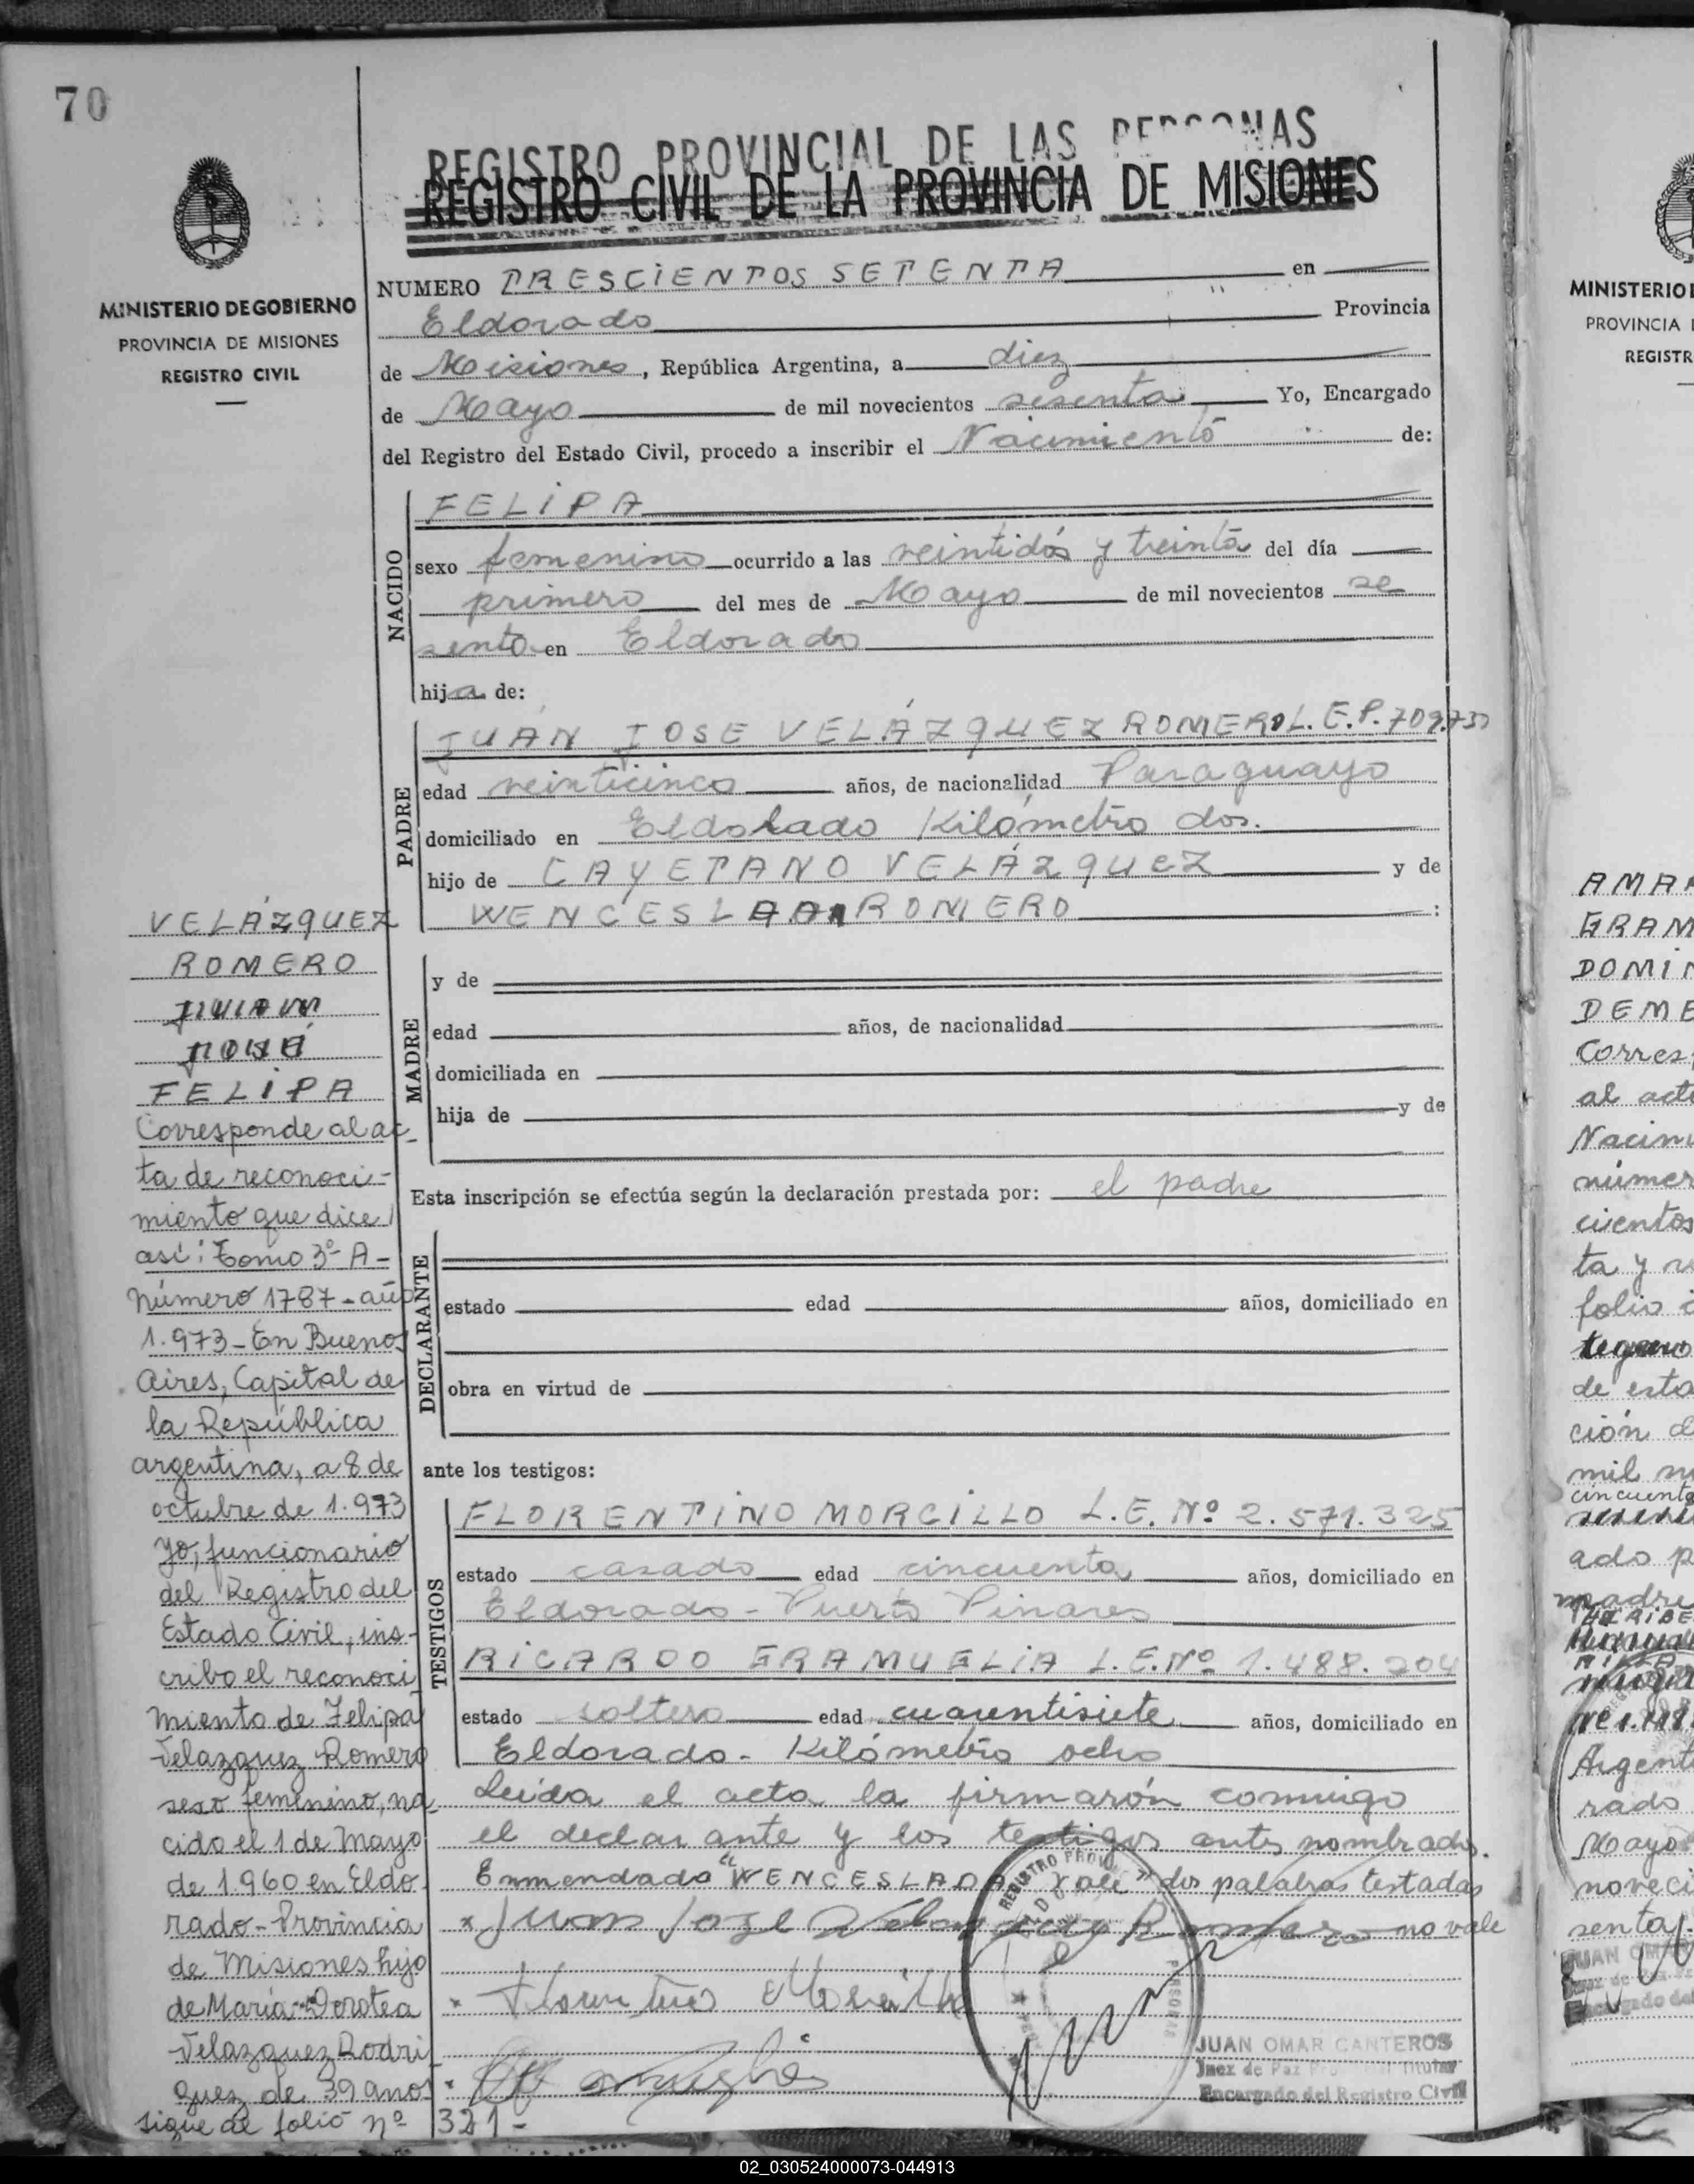 70
REGISTRO PROVINCIAL DE LAS PERSONAS
REGISTRO CIVIL DE LA PROVINCIA DE MISIONES
MINISTERIO DE GOBIERNO
PROVINCIA DE MISIONES
REGISTRO CIVIL
NUMERO TRESCIENTOS SETENTA en
Eldorado Provincia
de Misiones, República Argentina, a diez
de Mayo de mil novecientos sesenta Yo, Encargado
del Registro del Estado Civil, procedo a inscribir el Nacimiento de:
NACIDO
FELIPA
sexo femenino ocurrido a las veintidós y treinta del día
primero del mes de Mayo de mil novecientos se
senta en Eldorado
hija de:
PADRE
JUAN JOSE VELÁZQUEZ ROMERO L.E.P. 709.73
edad veinticinco años, de nacionalidad Paraguayo
domiciliado en Eldorado Kilómetro dos.
hijo de CAYETANO VELÁZQUEZ y de
WENCESLADA ROMERO :
MADRE
y de
edad años, de nacionalidad
domiciliada en
hija de y de
Esta inscripción se efectúa según la declaración prestada por: el padre
DECLARANTE
estado edad años, domiciliado en
obra en virtud de
ante los testigos:
TESTIGOS
FLORENTINO MORCILLO L.E. Nº 2.571.325
estado casado edad cincuenta años, domiciliado en
Eldorado - Puerto Pinares
RICARDO GRAMUGLIA L.E. Nº 1.488.204
estado soltero edad cuarentisiete años, domiciliado en
Eldorado - Kilómetro ocho
Leída el acta la firmarón conmigo
el declarante y los testigos antes nombrados.
Enmendado "WENCESLADA vale" dos palabras testadas
x Juan Jose Velazquez Romero no vale
x Florentino Morcillo
JUAN OMAR CANTEROS
Juez de Paz Titular
Encargado del Registro Civil
VELÁZQUEZ
ROMERO
JUAN
JOSÉ
FELIPA
Corresponde al ac-
ta de reconoci-
miento que dice
así: Tomo 3º A-
Número 1787 - año
1.973 - En Buenos
Aires, Capital de
la República
argentina, a 8 de
octubre de 1.973
yo, funcionario
del Registro del
Estado Civil, ins-
cribo el reconoci
miento de Felipa
Velazquez Romero
sexo femenino, na
cido el 1 de Mayo
de 1.960 en Eldo
rado - Provincia
de Misiones hijo
de María Dorotea
Velazquez Rodri
guez de 39 años
sigue al folio nº 321-
MINISTERIO
PROVINCIA
REGISTR
AMA
GRAM
DOMIN
DEME
Corres
al acta
Nacim
número
cientos
ta y
folio
de esta
ción d
mil
cincuenta
ado p
madre
Argent
rado
Mayo
noveci
senta
JUAN OMAR
02_030524000073-044913